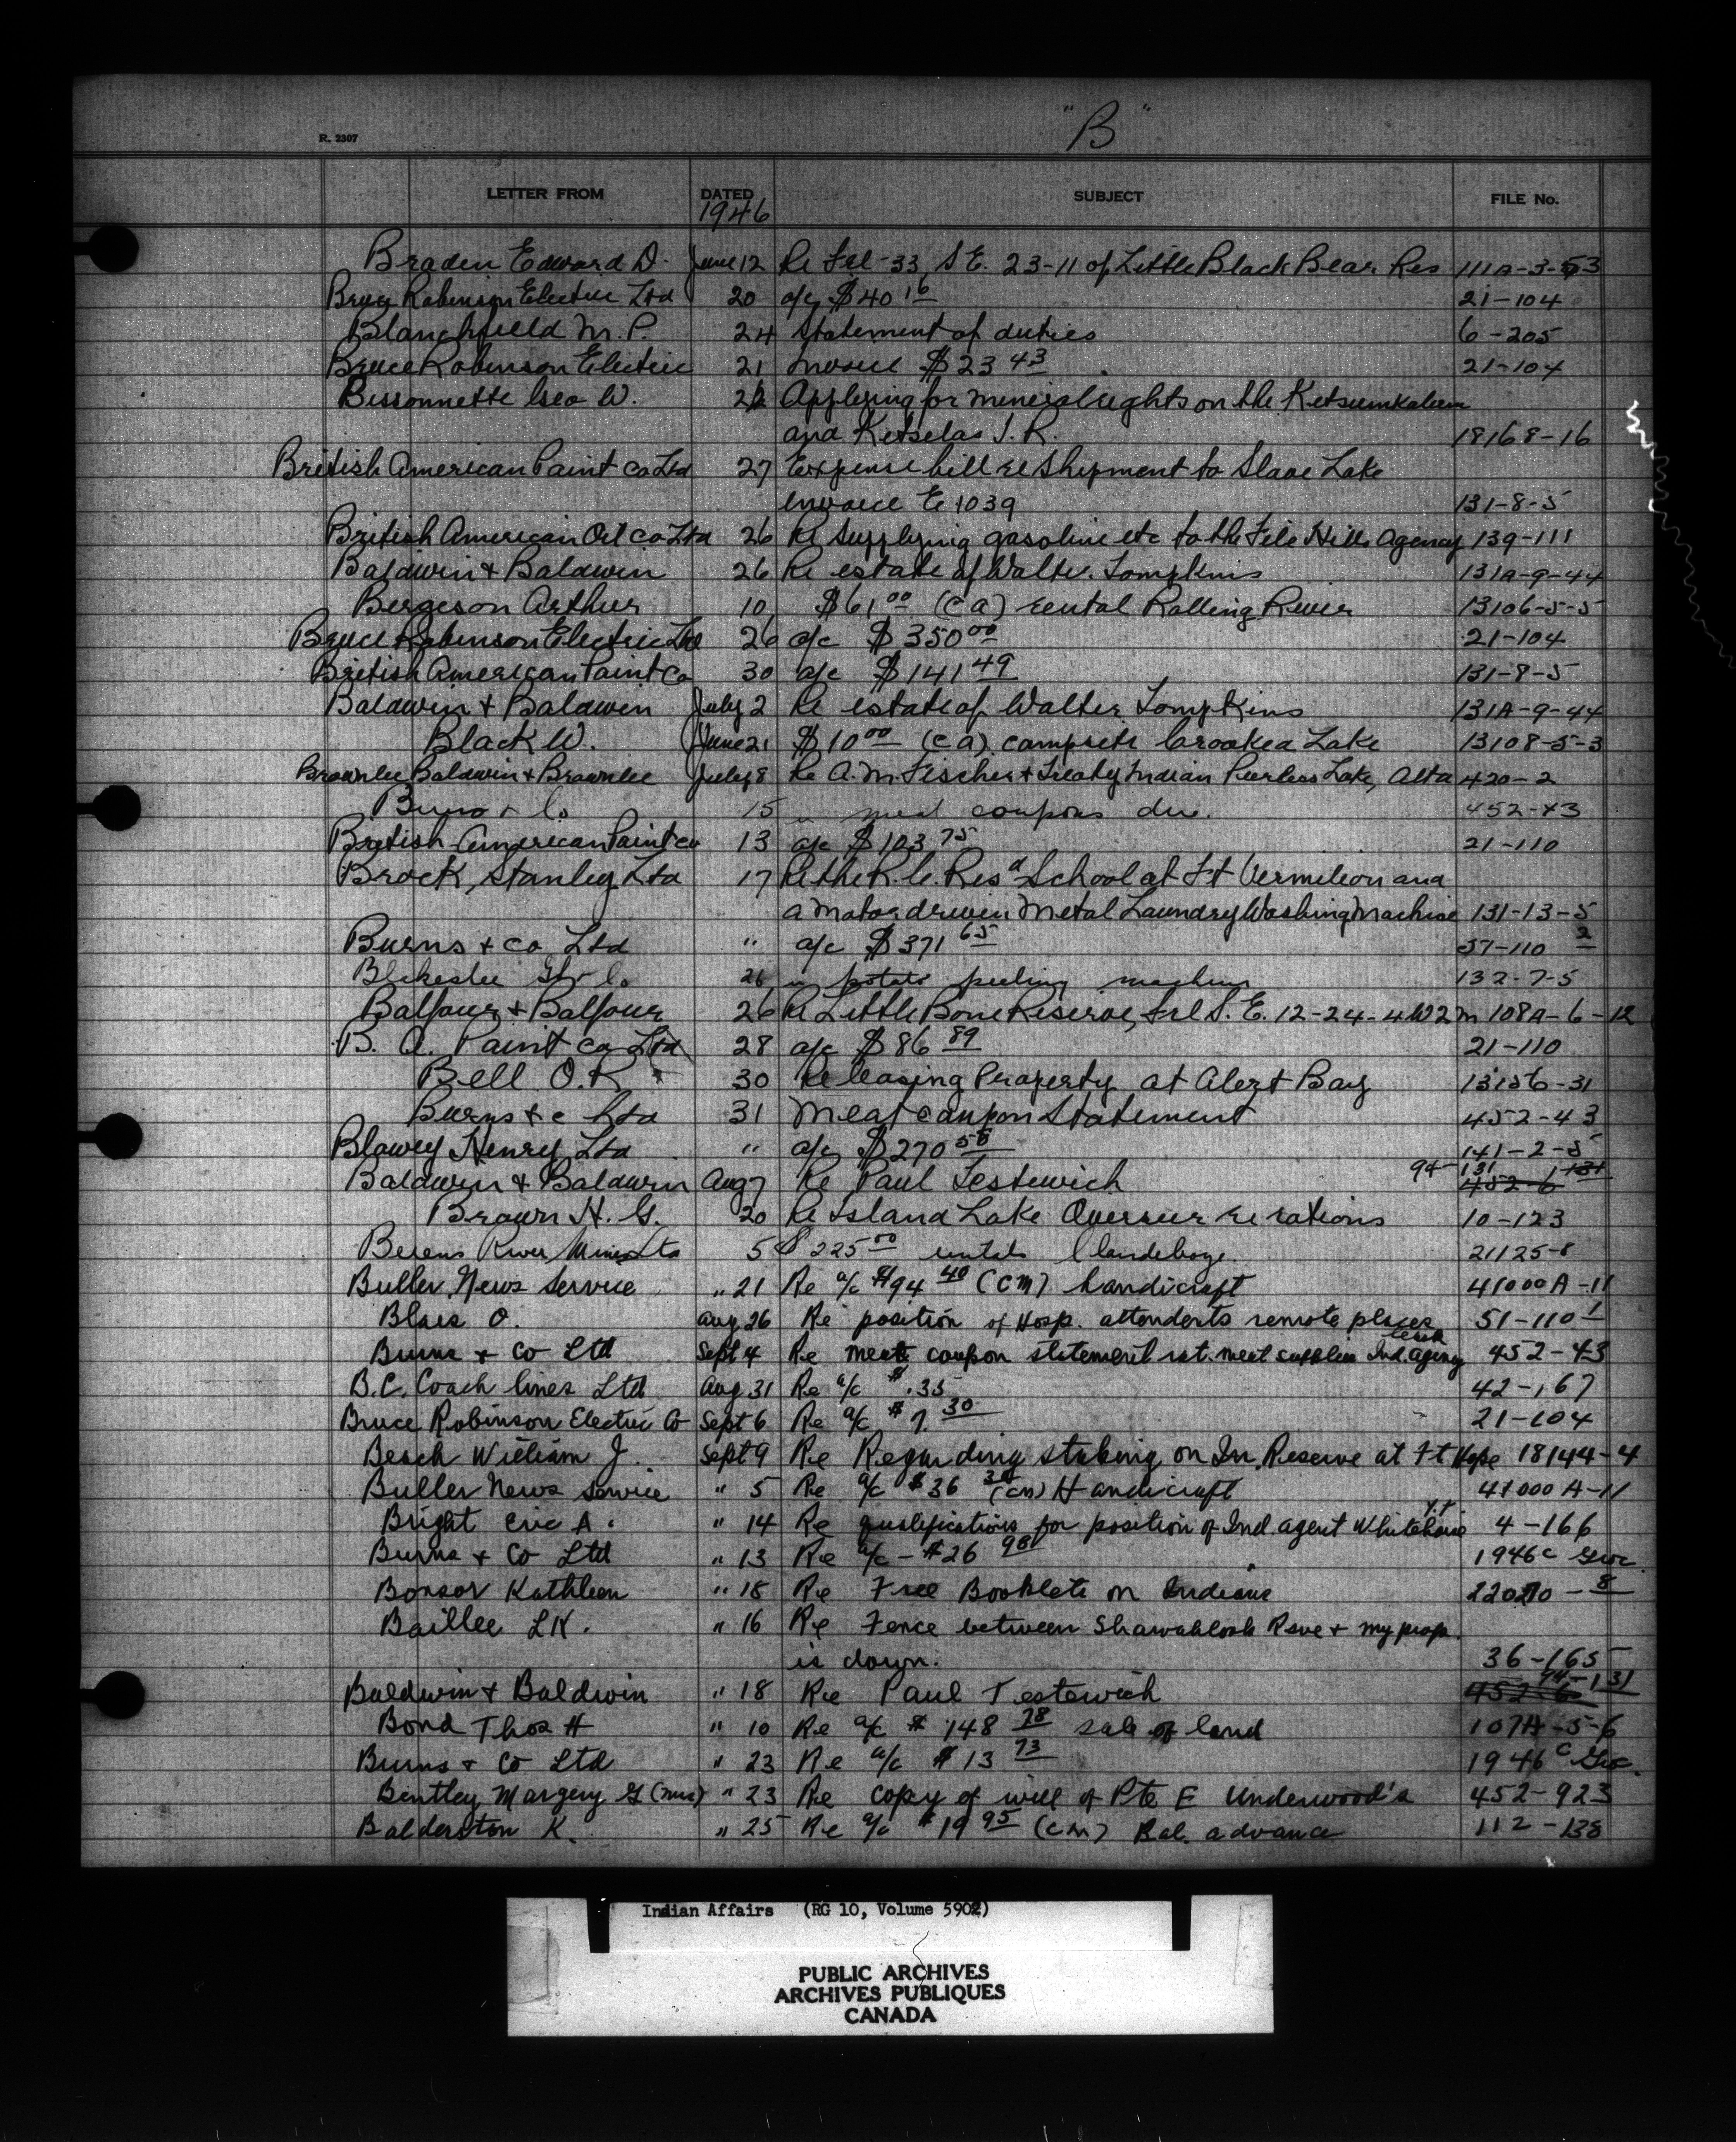 "B"
R. 2307
LETTER FROM DATED SUBJECT FILE No.
1946
Braden Edward D. June 12 Re Frl-33, S E. 23-11 of Little Black Bear Res 111A-3-53
Bruce Robinson Electric Ltd 20 a/c $40 16 21-104
Blanchfield M. P. 24 Statement of duties 6-205
Bruce Robinson Electric 21 Invoice $23 43 21-104
Bessonnette Geo W. Applying for mineral rights on the Kitsumkalum
and Kitselas I. R. 18168-16
British American Paint Co Ltd 27 Expense bill re shipment to Slave Lake
Invoice E 1039 131-8-5
British American Oil Co Ltd 26 Re supplying gasoline etc to the File Hills Agency 139-111
Baldwin & Baldwin 26 Re estate of Walter Tompkins 131A-9-44
Bergeson Arthur 10 $61 00 (CA) rental Rolling River 13106-5-5
Bruce Robinson Electric Ltd 26 a/c $350 00 21-104
British American Paint Co 30 a/c $141 49 131-8-5
Baldwin & Baldwin July 2 Re estate of Walter Tompkins 131A-9-44
Black W. June 21 $10 00 (CA) campsite Crooked Lake 13108-5-3
Brownlee Baldwin & Brownlee July 8 Re A. M. Fischer & Treaty Indian Peerless Lake, Alta 420-2
15 " meat coupons due. 452-43
British American Paint Co 13 a/c $103 75 21-110
Brock, Stanley Ltd 17 Re the R. C. Res School at Ft Vermilion and
a motor driven Metal Laundry Washing Machine 131-13-5
Burns & Co Ltd " a/c $371 65 57-110 2
Blakeslee & Co. 26 " potato peeling machine 132-7-5
Balfour & Balfour 26 Re Little Bone Reserve, Frl S. E. 12-24-4W2m 108A-6-12
B. A. Paint Co Ltd 28 a/c $86 89 21-110
Bell O. R 30 Re leasing Property at Alert Bay 13156-31
Burns & c Ltd 31 Meat coupon Statement 452-43
Blowey Henry Ltd " a/c $270 58 141-2-5
Baldwin & Baldwin Aug 7 Re Paul Testewich 94-131
Brown H. G. 20 Re Island Lake Overseer re rations 10-123
Berens River Mines Ltd 5 $225 00 rentals Clandeboye 21125-8
Buller News Service " 21 Re a/c $94 40 (CM) handicraft 41000A-11
Blais O. Aug 26 Re position of Hosp. attendents remote places 51-110 1
Burns & Co Ltd Sept 4 Re meat coupon statement rat. meat supplies Ind. agency 452-43
B. C. Coach lines Ltd Aug 31 Re a/c $.35 42-167
Bruce Robinson Electric Co Sept 6 Re a/c $7. 30 21-104
Beach William J. Sept 9 Re Regarding staking on In. Reserve at Ft Hope 18144-4
Buller News Service " 5 Re a/c $36 30 (cm) Handicraft 41000 A-11
Bright Eric A. " 14 Re qualifications for position of Ind. agent Whitehorse Y.T 4-166
Burns & Co Ltd " 13 Re a/c - $26 98 1946c
Bonsor Kathleen " 18 Re Free Booklets on Indians
Baillee L K. " 16 Re Fence between Shawahlook Rsve & my prop.
is down. 36-165
Baldwin & Baldwin " 18 Re Paul Testewich 94-131
Bond Thos H " 10 Re a/c $148 78 sale of land 107A-5-6
Burns & Co Ltd " 23 Re a/c $13 73 1946 c
Bentley Margery G (mrs) " 23 Re copy of will of Pte E Underwood's 452-923
Balderston K. " 25 Re a/c $19 95 (CM) Bal. advance 112-138
Indian Affairs (RG 10, Volume 5902)
PUBLIC ARCHIVES
ARCHIVES PUBLIQUES
CANADA